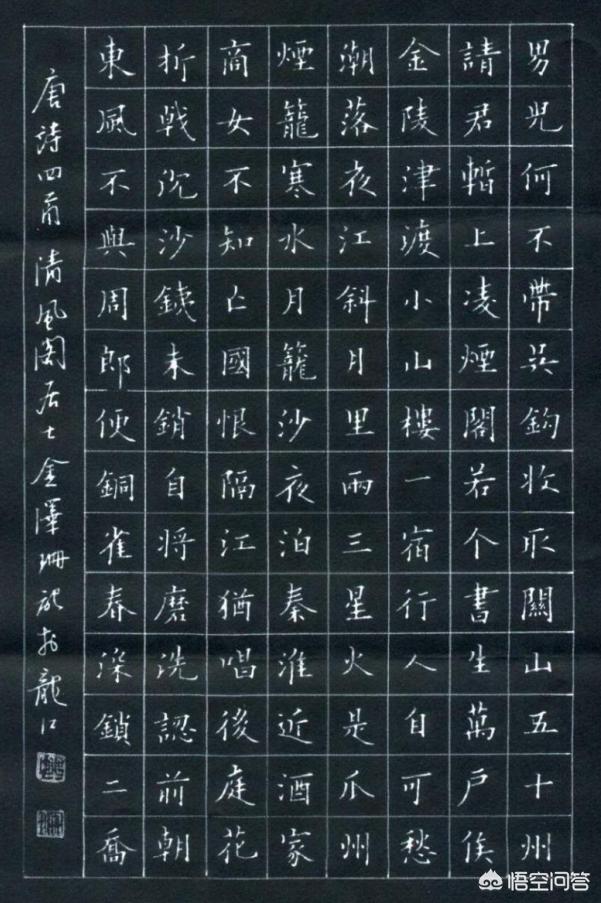 男兒何不帶吳鈎收取關山五十州
請君暫上凌煙閣若个書生萬戶侯
金陵津渡小山樓一宿行人自可愁
潮落夜江斜月里兩三星火是瓜州
煙籠寒水月籠沙夜泊秦淮近酒家
商女不知亡國恨隔江猶唱後庭花
折戟沉沙銕未銷自将磨洗認前朝
東風不與周郎便銅雀春深鎖二喬
唐詩四首清風閣居士金澤珊於龍江
悟空问答